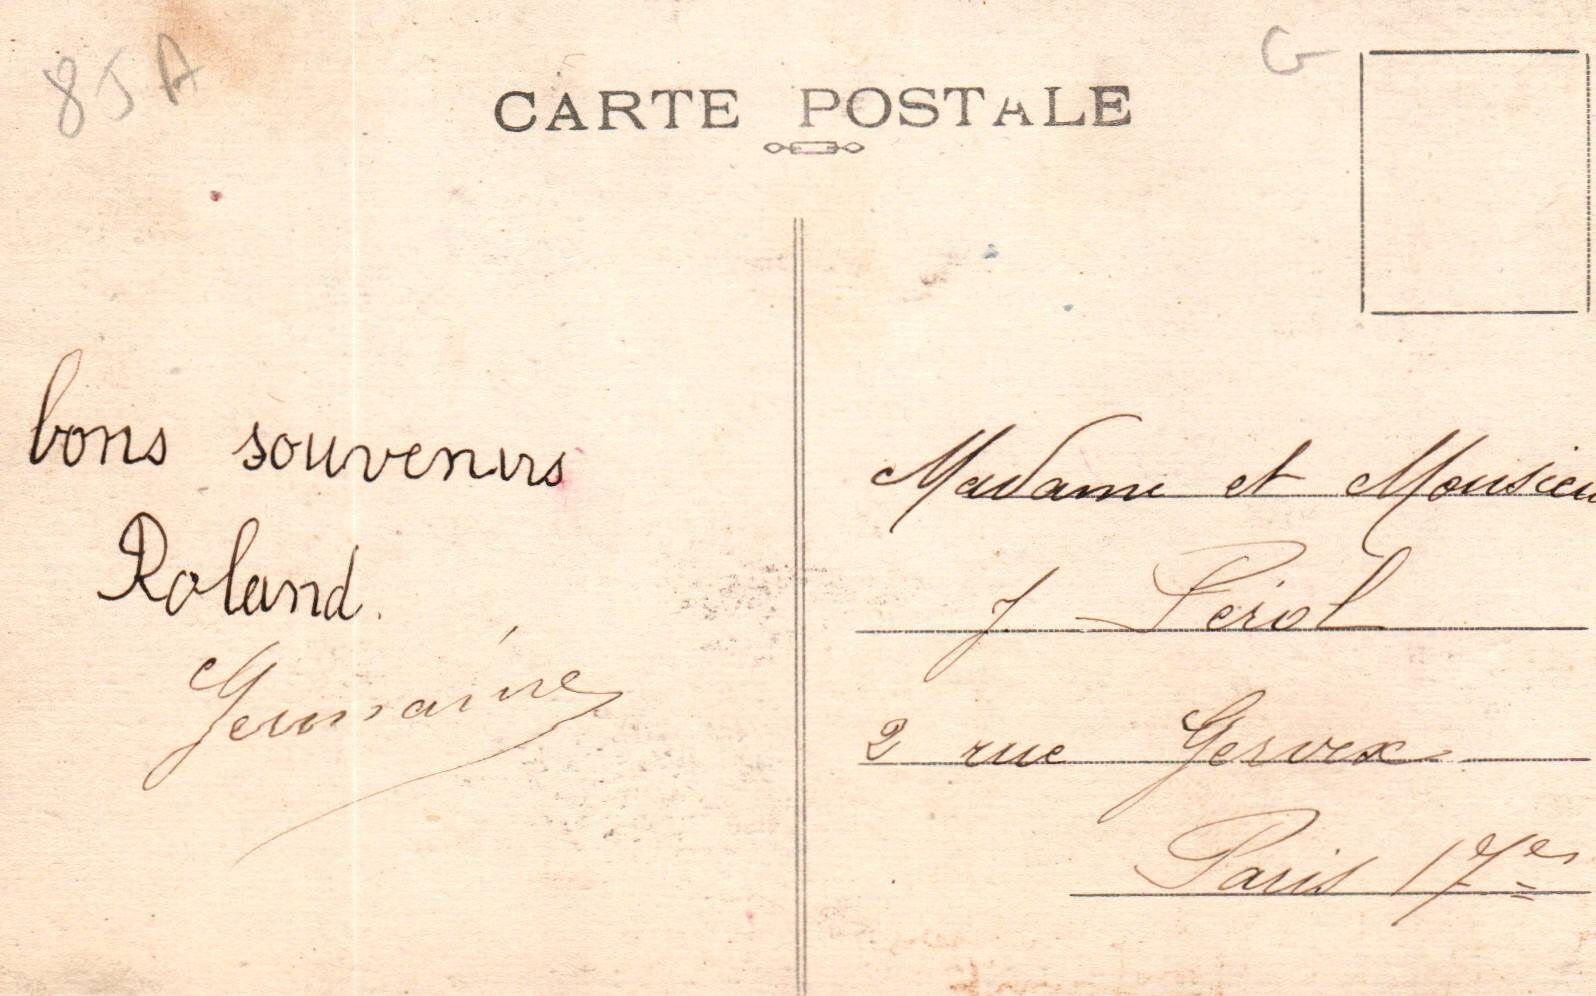 8JA
G
CARTE POSTALE
bons souvenirs
Roland.
Germaine
Madame et Monsieu
J. Pérol
2 rue Gervex
Paris 17e